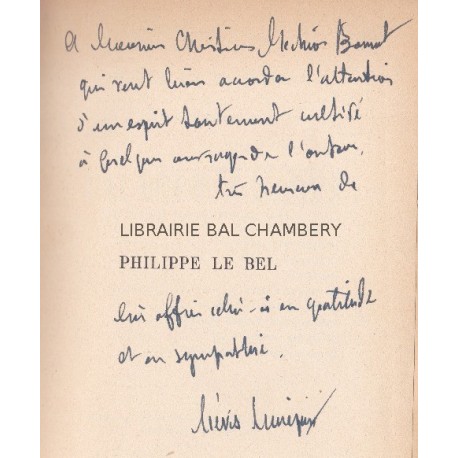 A Monsieur Christian Melchior Bonnet
qui veut bien accorder l'attention
d'un esprit hautement cultivé
à quelques ouvrages de l'auteur,
très heureux de
LIBRAIRIE BAL CHAMBERY
PHILIPPE LE BEL
lui offrir celui-ci en gratitude
et en sympathie.